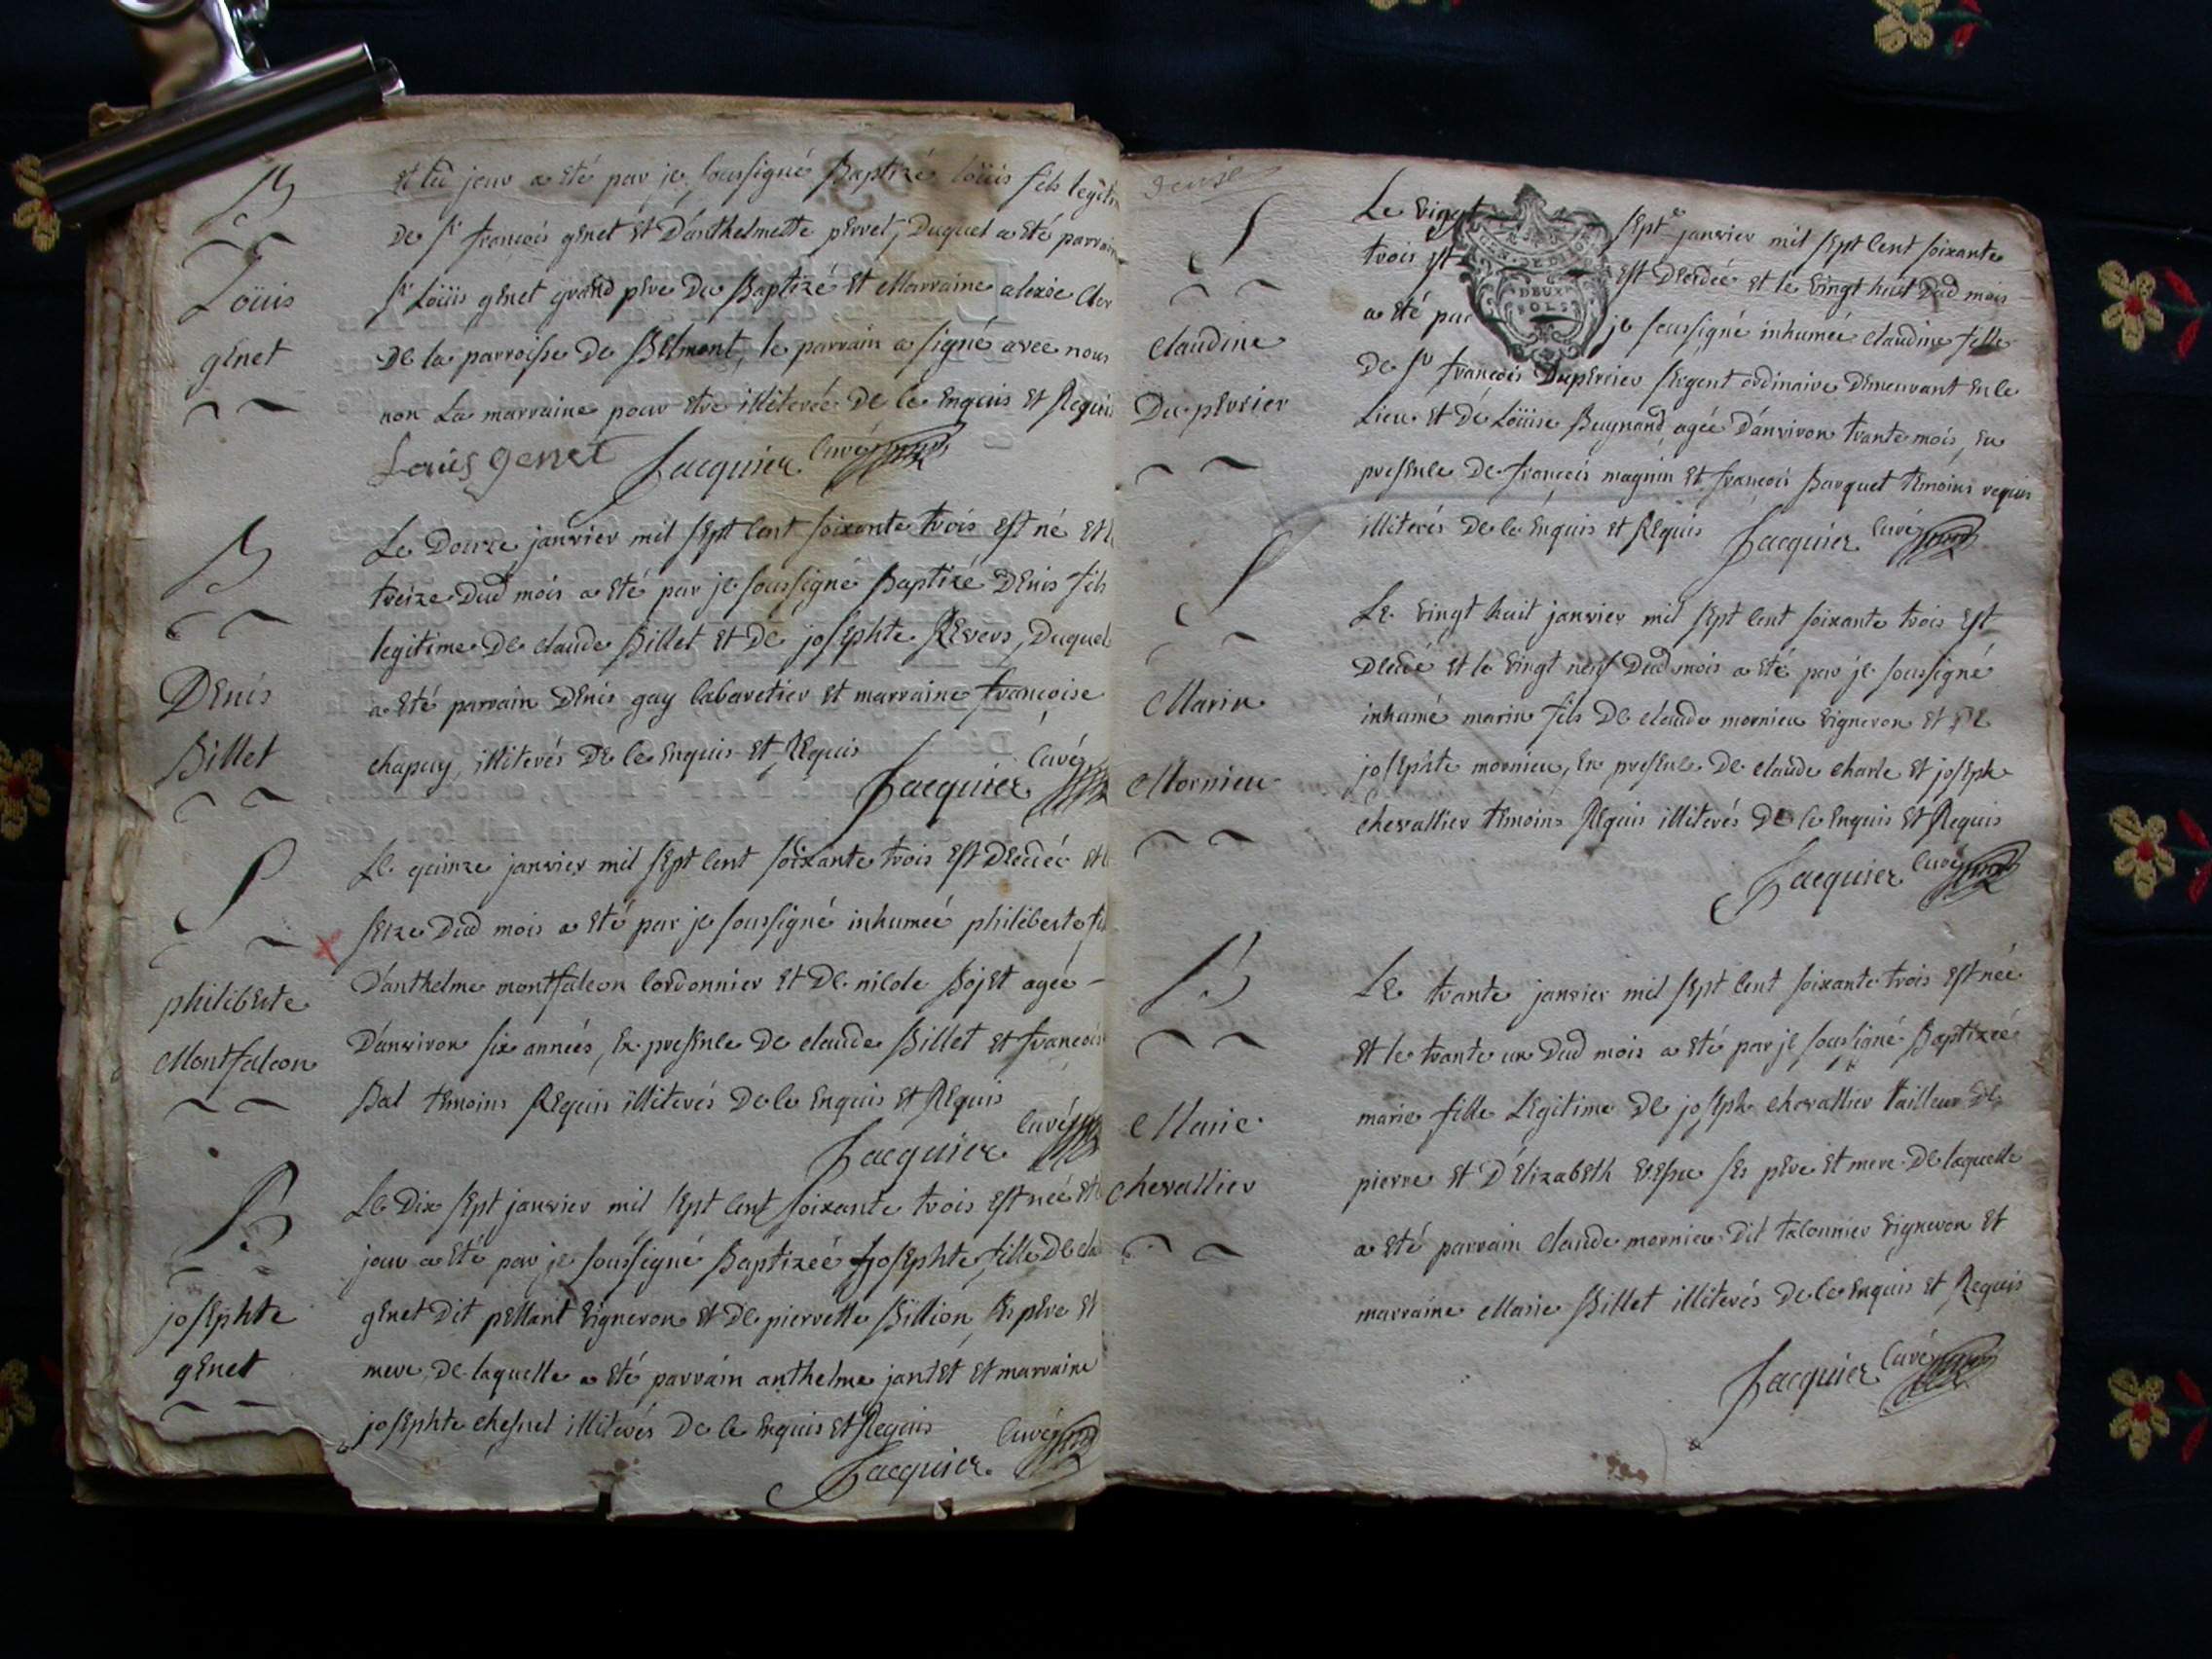 B
Loüis
genet
et led jour a eté par je soussigné Baptizé loüis fils legitim
de sr françois genet et d'anthelmette pervet, duquel a eté parrain
sr Loüis genet grand pere du Baptizé et Marraine alexie
de la parroisse de Belmont, le parrain a signé avec nous
non La marraine pour etre illiterée de ce enquis et Requis
Louis genet Jacquier curé
B
Denis
Billet
Le Douze janvier mil sept cent soixante trois est né et l
treize dud mois a eté par je soussigné Baptizé Denis fils
legitime de claude Billet et de josephte Revers, Duquel
a eté parrain Denis gay cabaretier et marraine françoise
chapuy, illiterés de ce enquis et Requis
Jacquier curé
S
philiberte
Montfalcon
Le quinze janvier mil sept cent soixante trois est decedée et l
seize dud mois a eté par je soussigné inhumeé philiberte fil
d'anthelme montfalcon cordonnier et de nicole Bojet ageé
d'anviron six anneés, en presence de claude Billet et françois
Bal temoins Requis illiterés de ce enquis et Requis
Jacquier curé
B
josephte
genet
Le Dix sept janvier mil sept cent soixante trois est neé et l
jour a eté par je soussigné Baptizeé josephte fille de cla
genet dit pellant vigneron et de pierrette Billion, ses pere et
mere, de laquelle a eté parrain anthelme jantet et marraine
josephte chesnel illiterés de ce enquis et Requis
Jacquier curé
S
claudine
Duperier
Le vingt sept janvier mil sept cent soixante
trois est est decedeé et le vingt huit dud mois
a eté par je soussigné inhumeé claudine fille
GEN. DE DIJON
DEUX
SOLS
de sr françois Duperier sergent ordinaire demeurant en ce
Lieu et de Loüise Buynand, ageé d'anviron trante mois, en
presence de françois magnin et françois Barquet temoins requis
illiterés de ce enquis et Requis Jacquier curé
S
Marin
Mornieu
Le vingt huit janvier mil sept cent soixante trois est
decedé et le vingt neuf dud mois a eté par je soussigné
inhumé marin fils de claude mornieu vigneron et de
josephte mornieu, en presence de claude charle et joseph
chevallier temoins Requis illiterés de ce enquis et Requis
Jacquier curé
B
Marie
chevallier
Le trante janvier mil sept cent soixante trois est neé
et le trante un dud mois a eté par je soussigné Baptizeé
marie fille Legitime de joseph chevallier tailleur de
pierre et d'Elizabeth ses pere et mere de laquelle
a eté parrain claude mornieu dit talonnier vigneron et
marraine Marie Billet illiterés de ce enquis et Requis
Jacquier curé